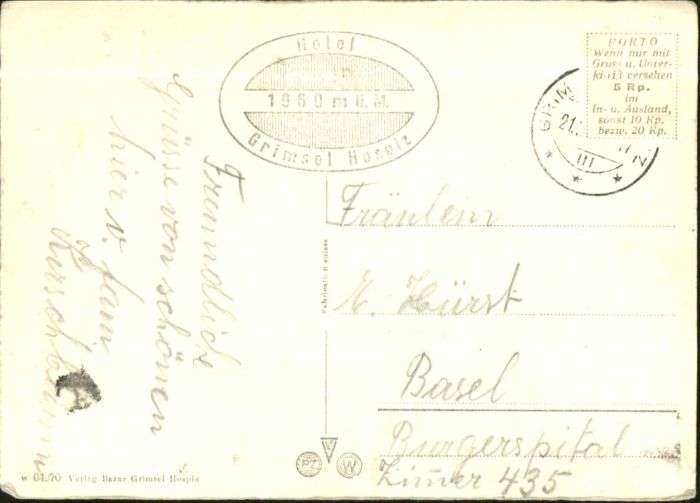 Hotel
1960 m ü.M.
Grimsel Hospiz
PORTO
Wenn nur mit
Gruss u. Unter-
schrift versehen
5 Rp.
im
In- u. Ausland,
sonst 10 Rp.
bezw. 20 Rp.
21.
III
Freundliche
Grüsse von schönen
hier v. fam
Kirschbaum
Fräulein
E. Hürst
Basel
Burgerspital
Zimmer 435
Fabrication suisse
PZ W
w 01.70 Verlag Bazar Grimsel Hospiz